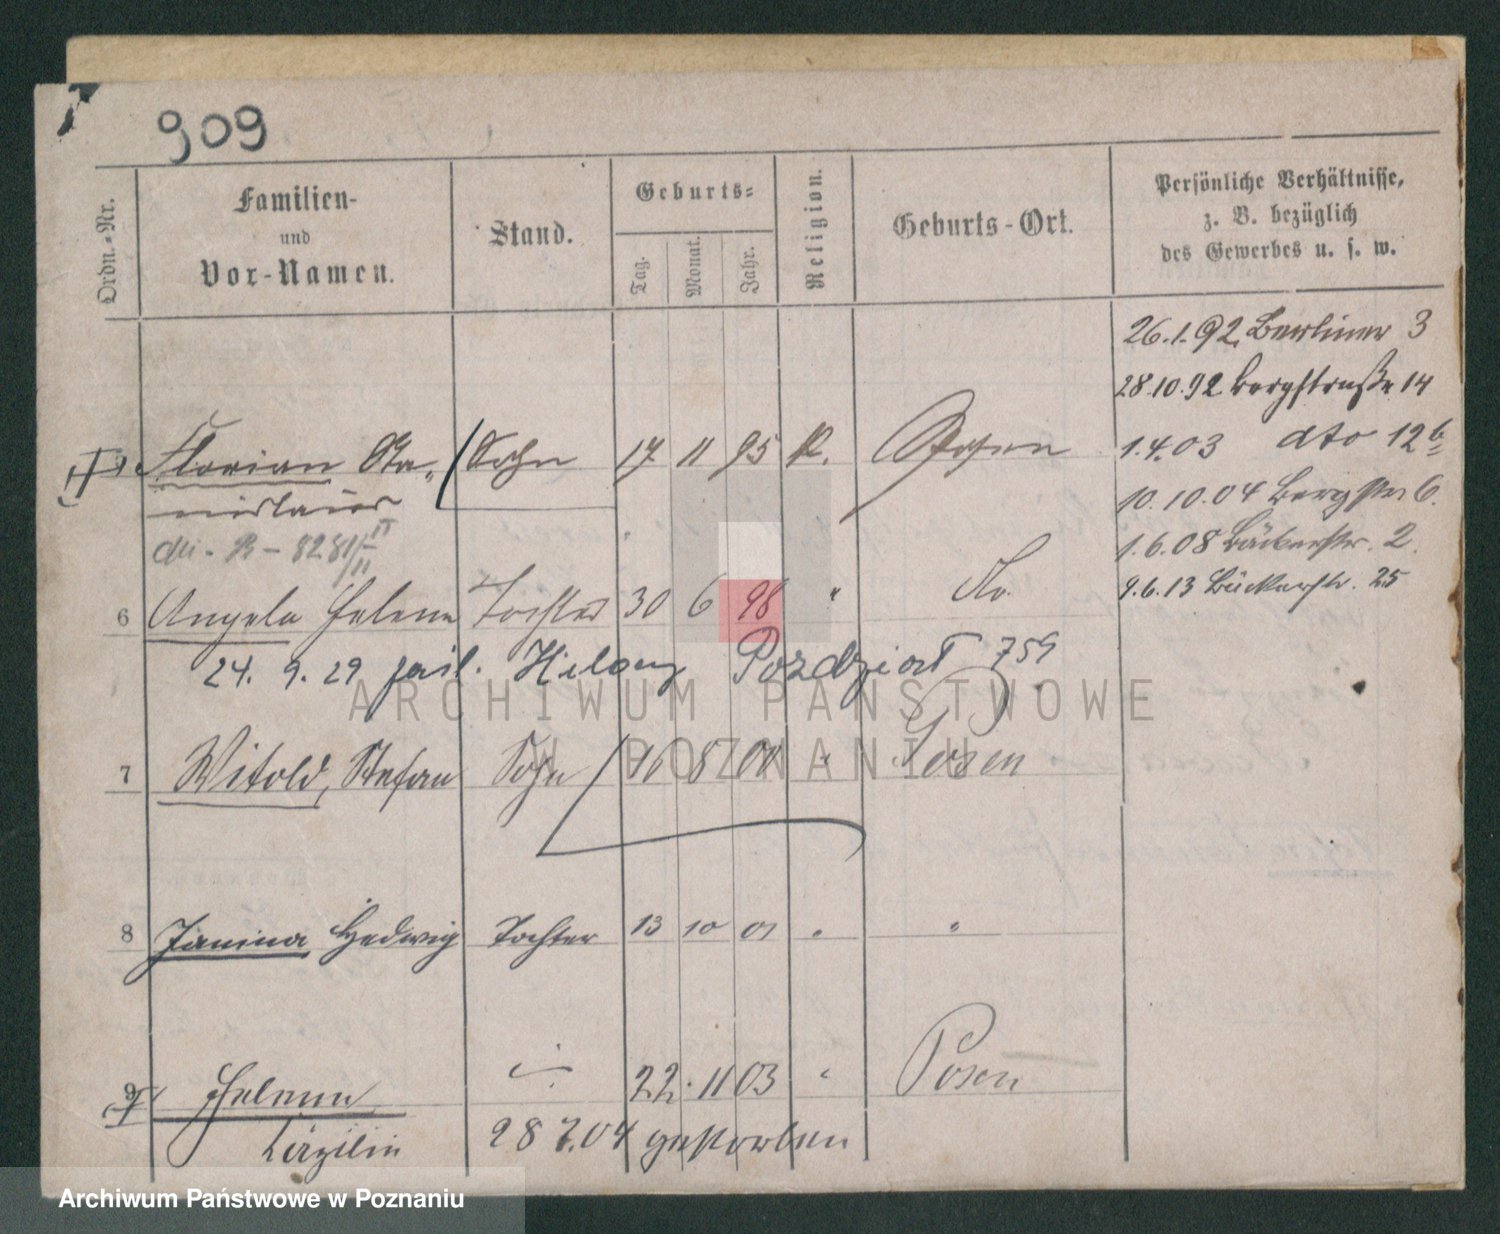 909
Ordn.-Nr.
Familien-
und
Vor-Namen.
Stand.
Geburts-
Tag.
Monat.
Jahr.
Religion.
Geburts-Ort.
Persönliche Verhältnisse,
z. B. bezüglich
des Gewerbes u. s. w.
26.1.92 Berliner 3
28.10.92 Bergstraße 14
1.4.03 dto 12b
10.10.04 Bergstr 6.
1.6.08 Bäckerstr. 2.
9.6.13 Bäckerstr. 25
Florian Sta- Sohn 17 11 95 K. Posen
nislaus
6 Angela Helene Tochter 30 6 98 " do.
24. 9. 29 759
7 Witold, Stefan Sohn 16 8 00 " Posen
8 Janina Hedwig Tochter 13 10 01 " "
9 Helene 22. 11 03 " Posen
Cäzilie 28 7.04 gestorben
ARCHIWUM PAŃSTWOWE
W POZNANIU
Archiwum Państwowe w Poznaniu